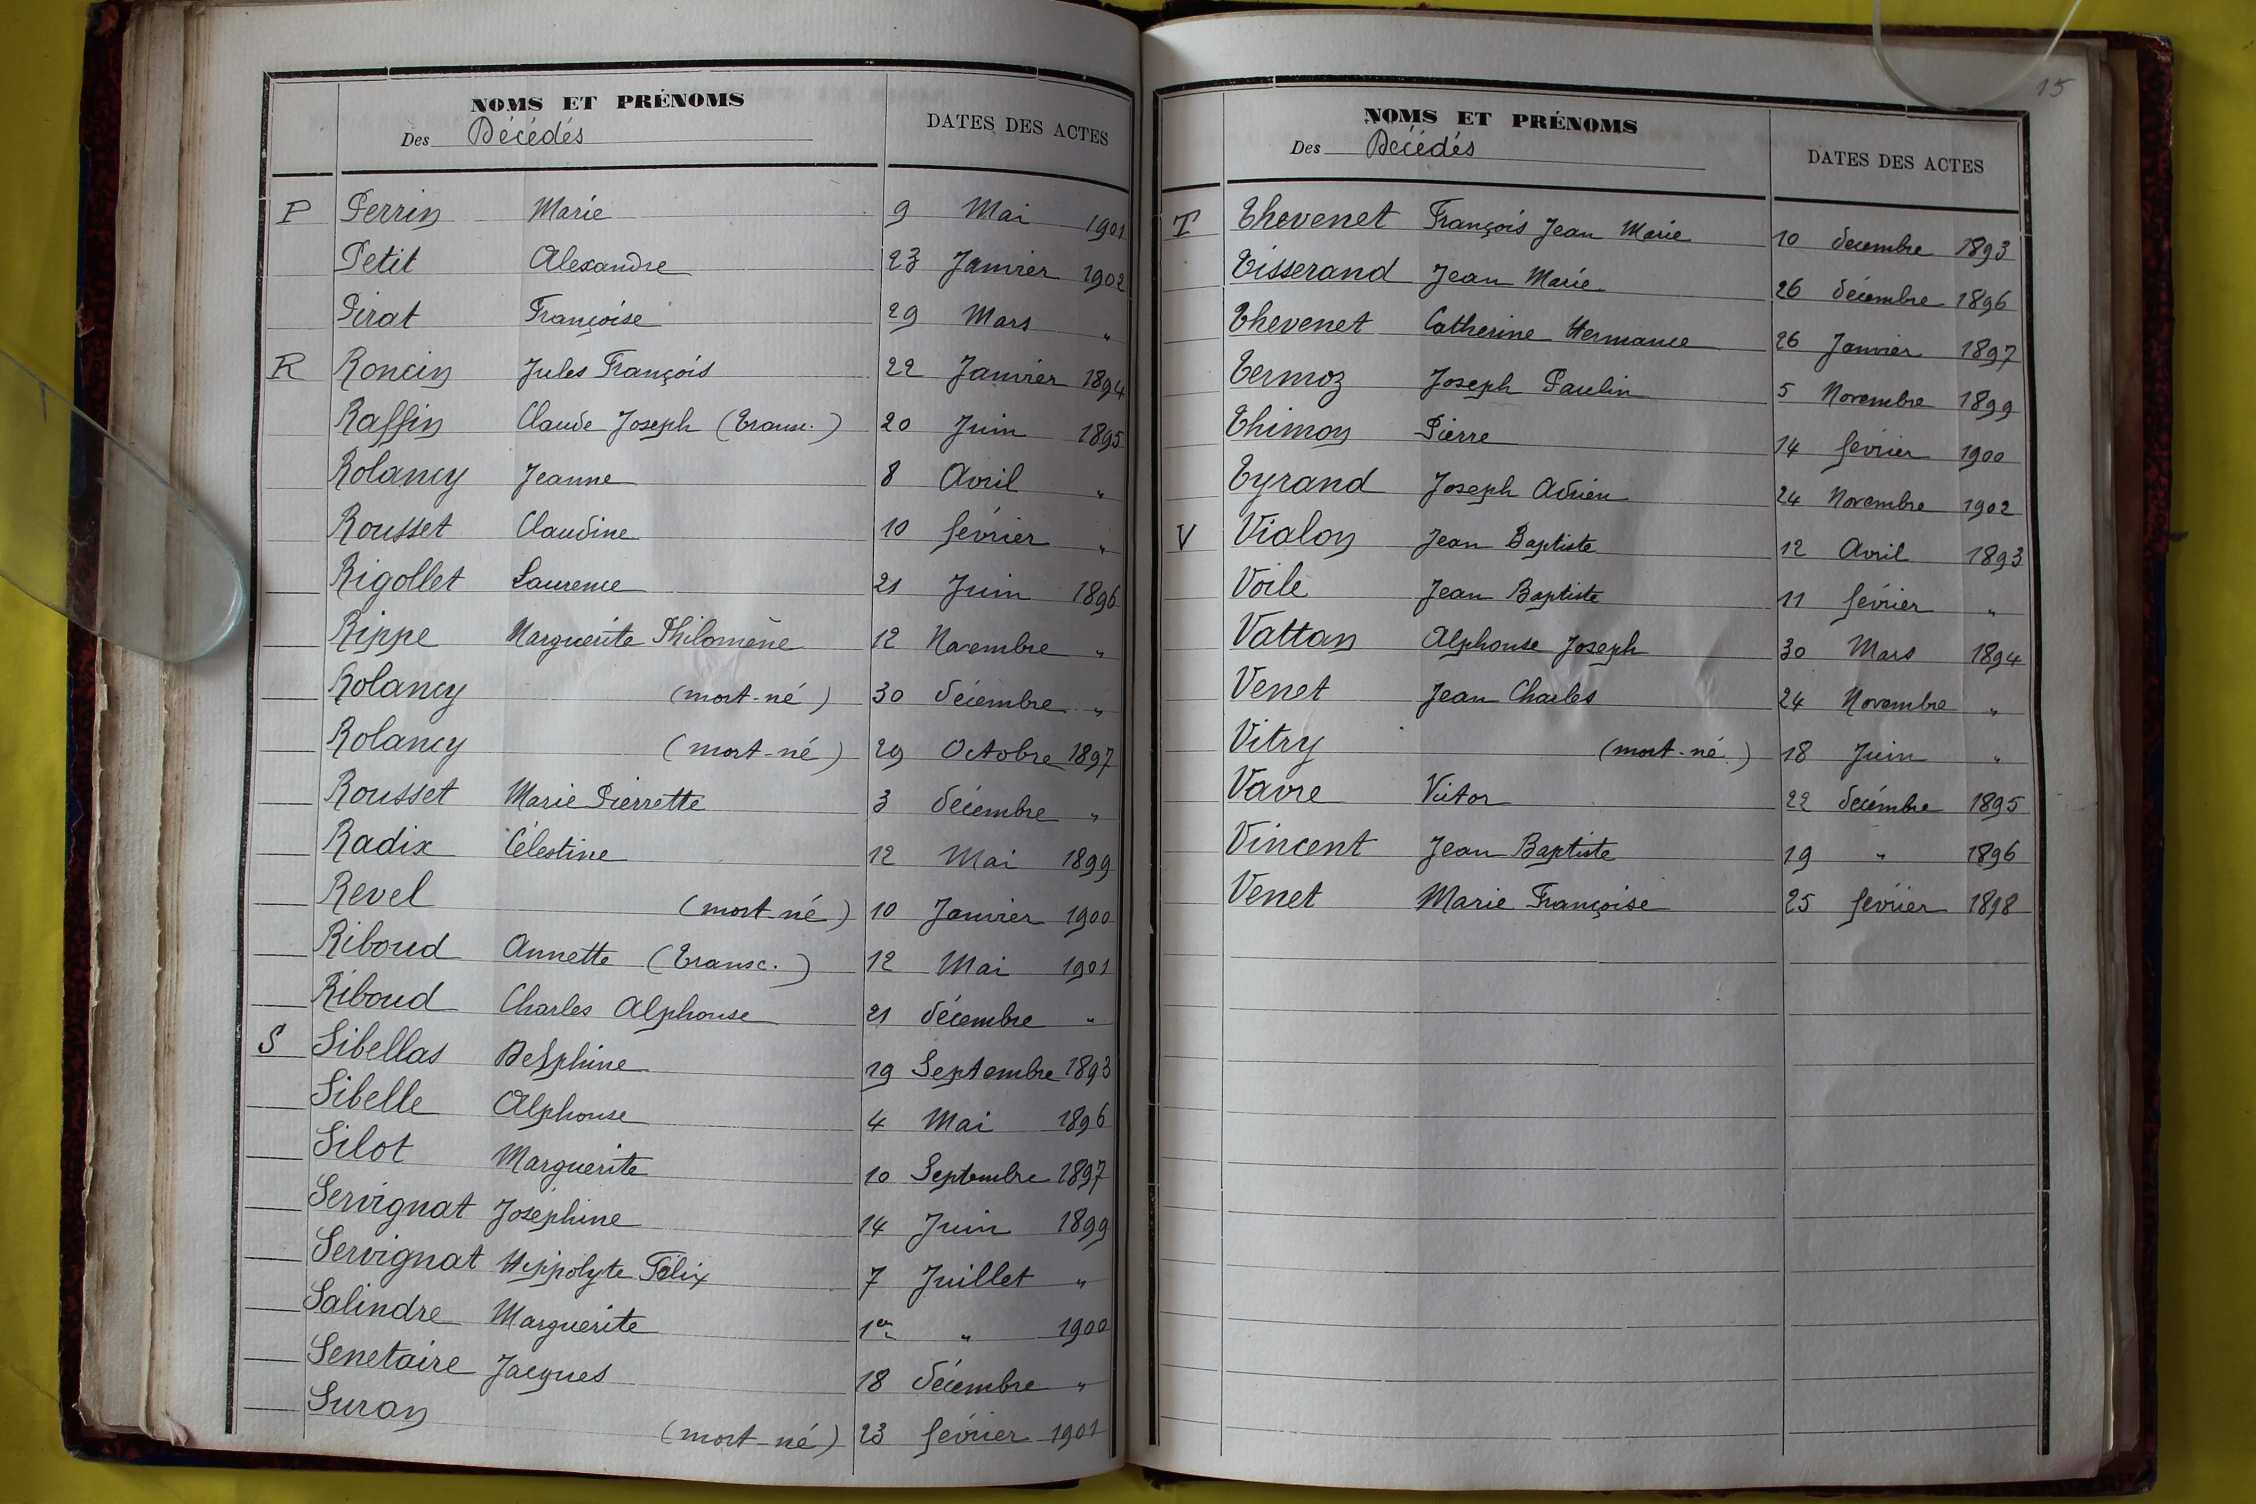 NOMS ET PRÉNOMS
Des Décédés
DATES DES ACTES
P Perrin Marie 9 Mai 1901
Petit Alexandre 23 Janvier 1902
Pirat Françoise 29 Mars "
R Roncin Jules François 22 Janvier 1894
Raffin Claude Joseph (Transc.) 20 Juin 1895
Rolancy Jeanne 8 Avril "
Rousset Claudine 10 février "
Rigollet Laurence 21 Juin 1896
Rippe Marguerite Philomène 12 Novembre "
Rolancy (mort-né) 30 décembre "
Rolancy (mort-né) 29 Octobre 1897
Rousset Marie Pierrette 3 décembre "
Radix Célestine 12 Mai 1899
Revel (mort-né) 10 Janvier 1900
Riboud Annette (Transc.) 12 Mai 1901
Riboud Charles Alphonse 21 décembre "
S Sibellas Delphine 19 Septembre 1893
Sibelle Alphonse 4 Mai 1896
Silot Marguerite 10 Septembre 1897
Servignat Joséphine 14 Juin 1899
Servignat Hippolyte Félix 7 Juillet "
Salindre Marguerite 1er " 1900
Senetaire Jacques 18 décembre "
Suran (mort-né) 23 février 1901
15
NOMS ET PRÉNOMS
Des Décédés
DATES DES ACTES
T Thevenet François Jean Marie 10 decembre 1893
Tisserand Jean Marie 26 décembre 1896
Thevenet Catherine Hermance 26 Janvier 1897
Termoz Joseph Paulin 5 Novembre 1899
Thimon Pierre 14 février 1900
Tyrand Joseph Adrien 24 Novembre 1902
V Vialon Jean Baptiste 12 Avril 1893
Voile Jean Baptiste 11 février "
Vattan Alphonse Joseph 30 Mars 1894
Venet Jean Charles 24 Novembre "
Vitry (mort-né) 18 Juin "
Vavre Victor 22 decémbre 1895
Vincent Jean Baptiste 19 " 1896
Venet Marie Françoise 25 février 1898